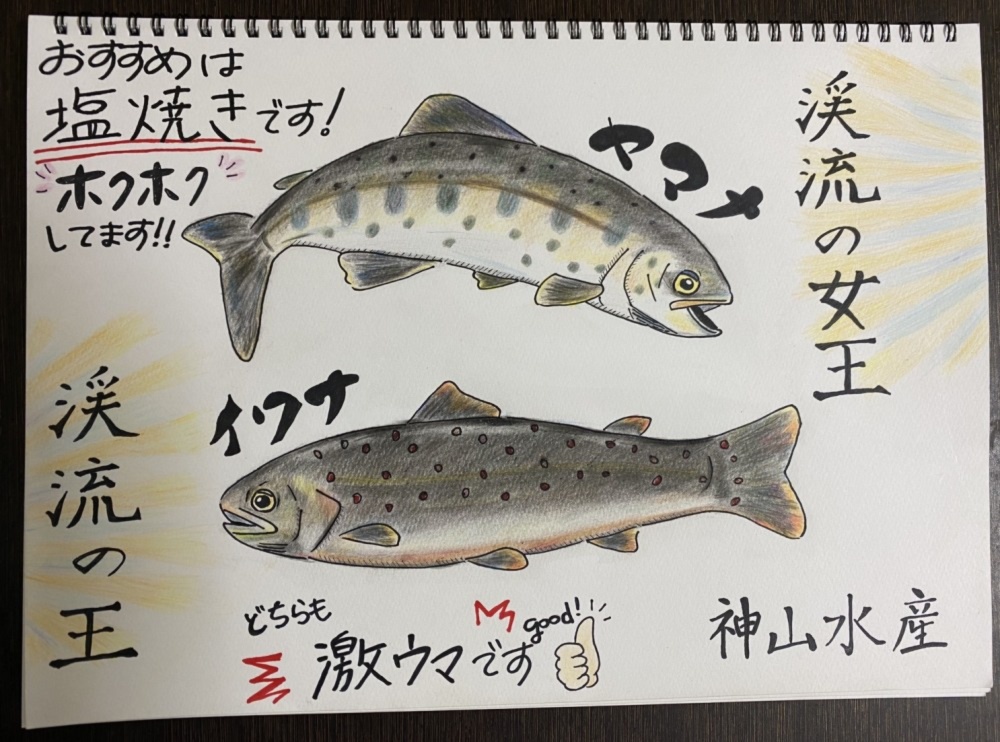 おすすめは
塩焼きです!
ホクホク
してます!!
ヤマメ
渓流の女王
イワナ
渓流の王
どちらも
激ウマです
good!
神山水産